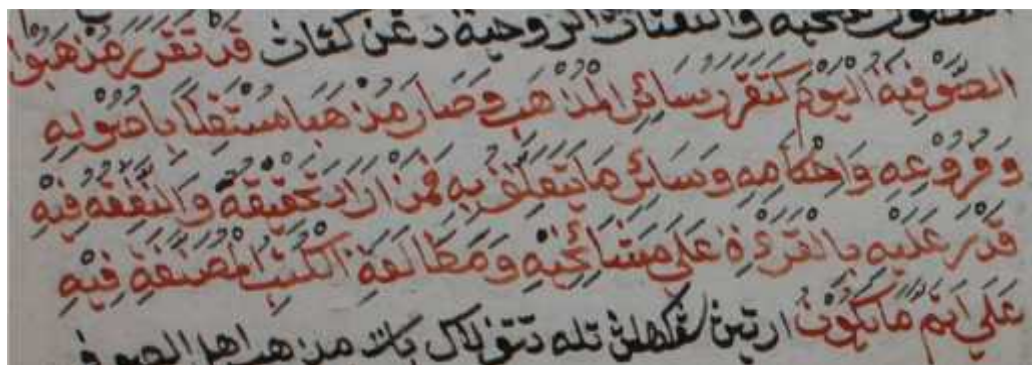 والنفحات الروحية دڠن كتاڽ قَدْ تَقَرَّرَ مَذْهَبُ
الصُّوْفِيَّةِ الْيَوْمَ كَتَقَرُّرِ سَائِرِ الْمَذْهَبِ وَصَارَ مَذْهَبًا مُسْتَقِلًّا بِاُصُوْلِهِ
وَفُرُوْعِهِ وَاَحْكَامِهِ وَسَائِرِ مَا يَتَعَلَّقُ بِهِ فَمَنْ اَرَادَ تَحْقِيْقَهُ وَالتَّفَقُّهَ فِيْهِ
قَدَرَ عَلَيْهِ بِالْقِرَءَةِ عَلَى مَشَائِخِهِ وَمُطَالَعَةِ الْكُتُبِ الْمُصَنَّفَةِ فِيْهِ
عَلَى اَتَمِّ مَا يَكُوْنُ ارتيڽ سڠكهڽ تله تتفله باݢي مذهب اهل الصوفي